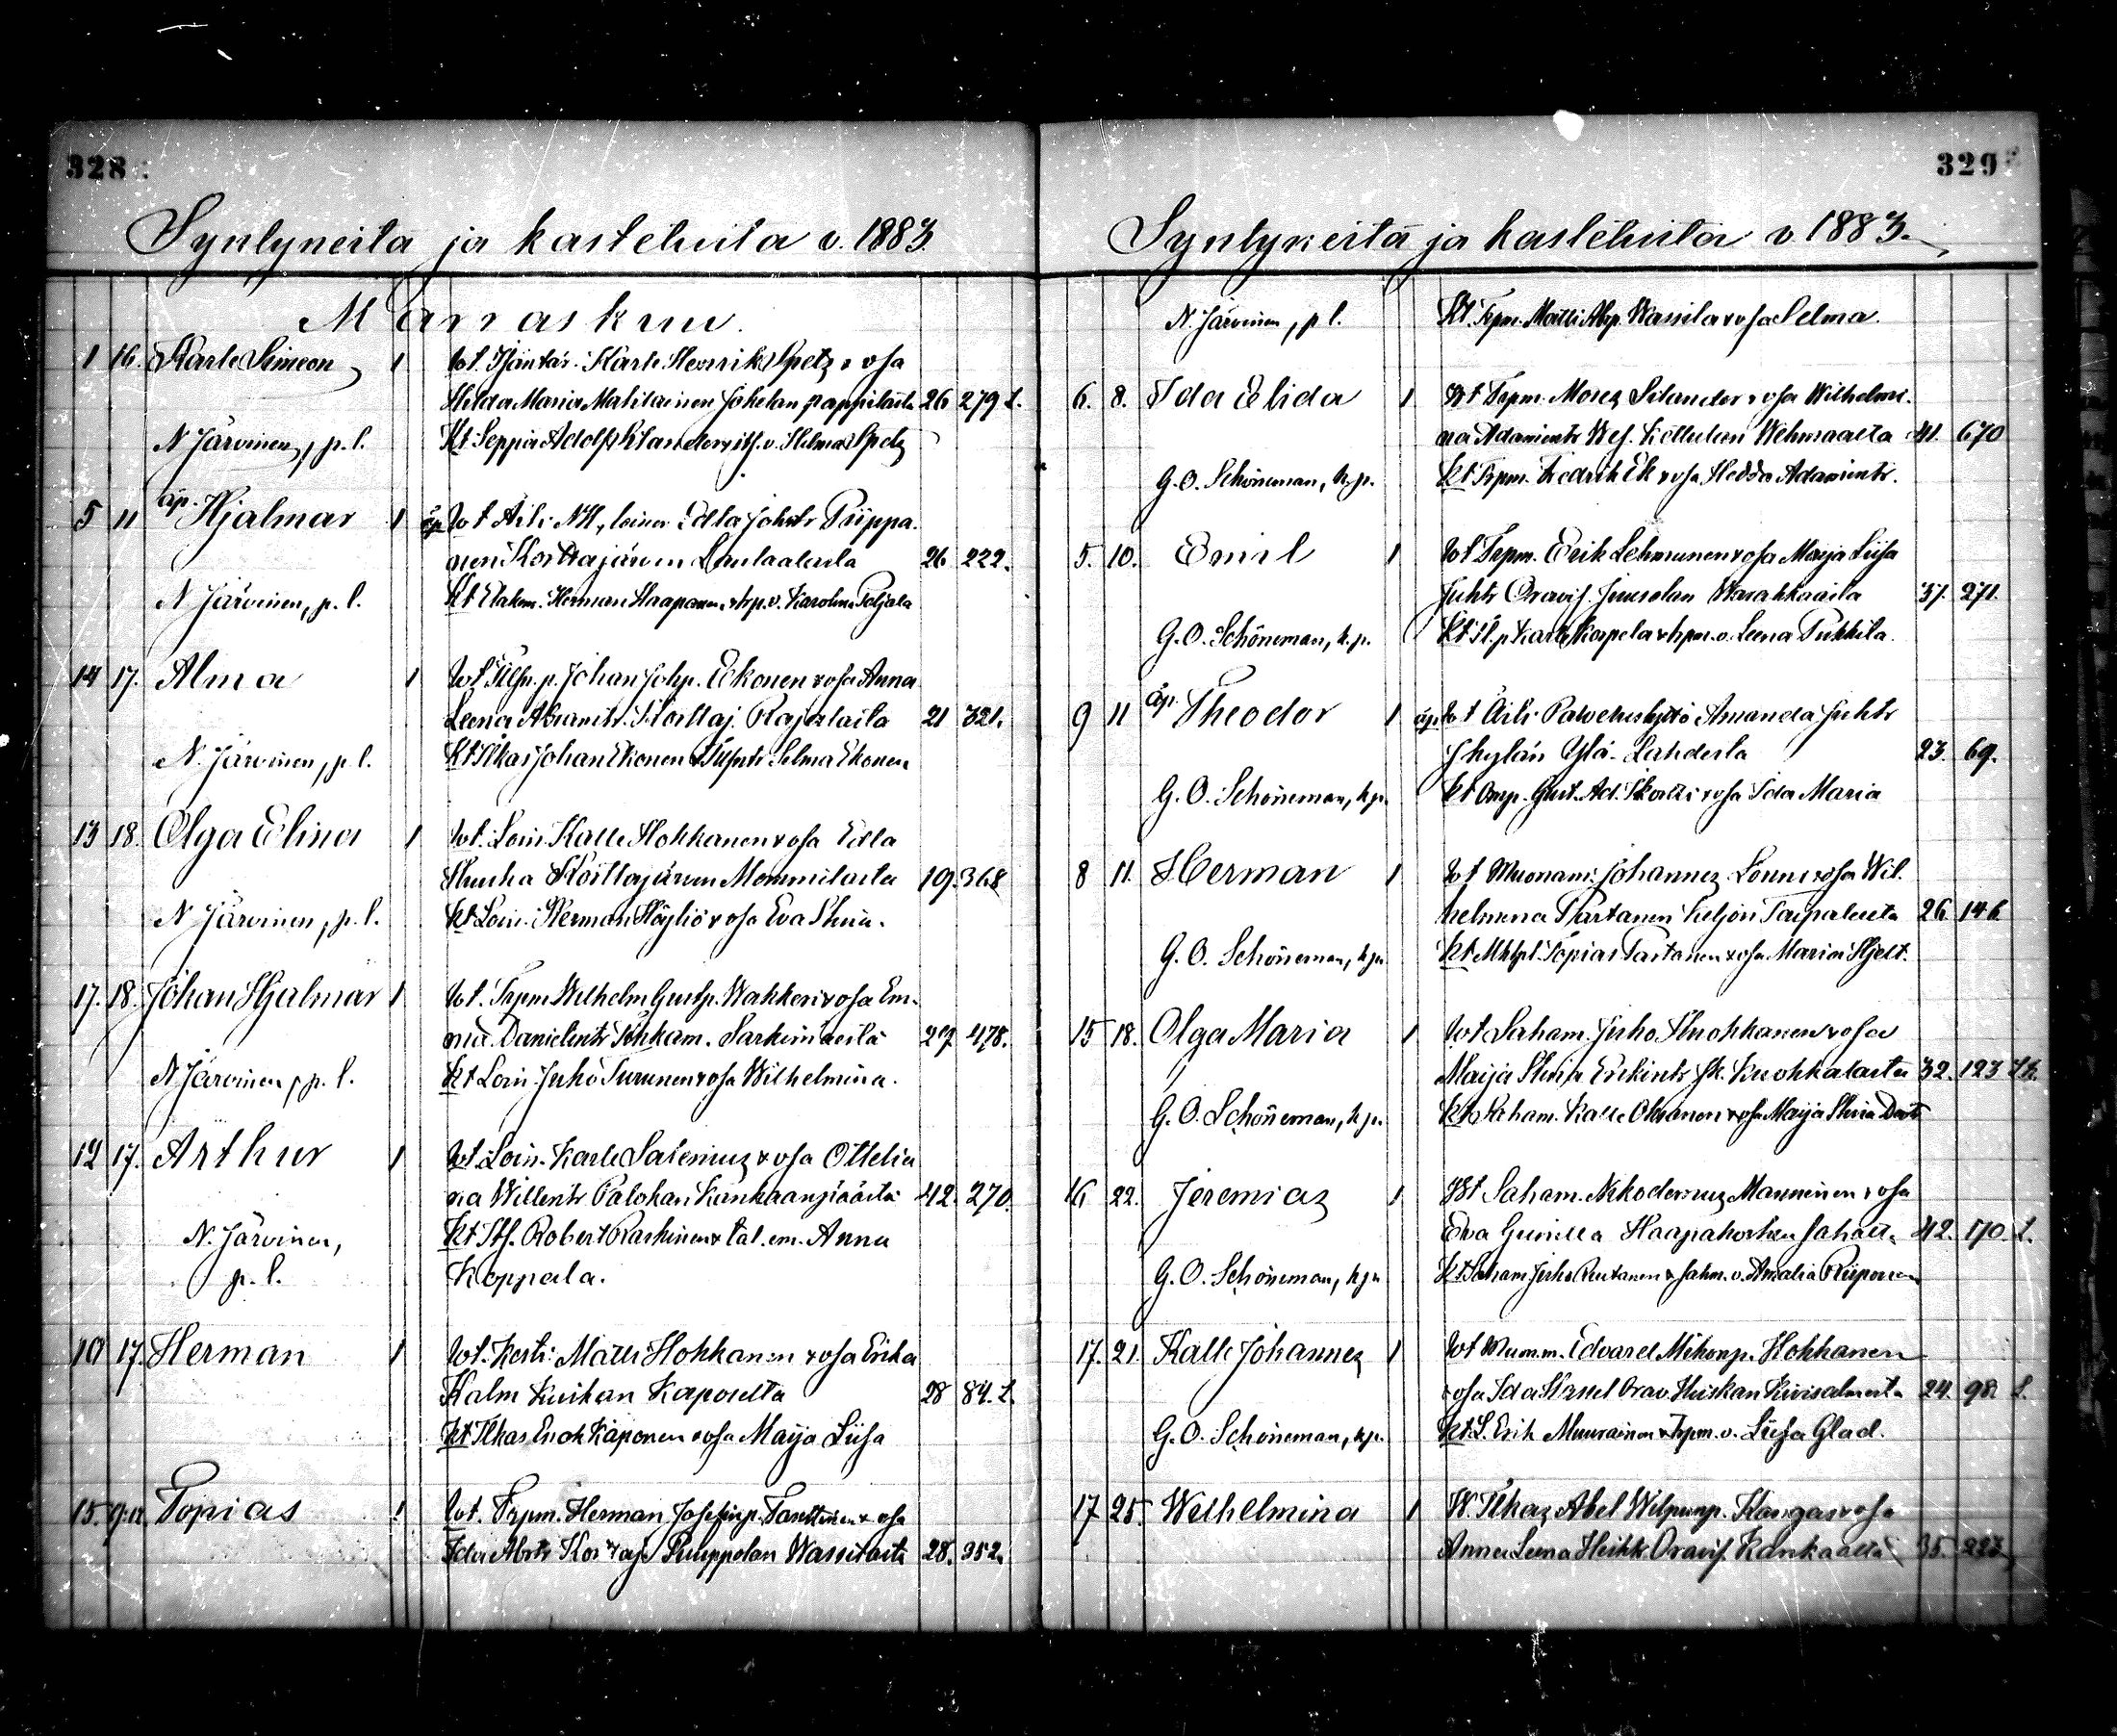 328
Syntyneitä ja kastetuita v. 1883.
Marraskuu.
1 16. Karle Simeon 1 Wt. Karle Henrik Spetz & vsa
Hilda Maria Matilainen Jokelan pappilasta 26 279 L.
N. Järvinen, p. l. Kt. Seppä Adolf & its. v. Hilma Spetz
5 11 äp. Hjalmar 1 äp. Wt Äiti: Edla Johtr Piippa-
nen Korttajärven Lautaalasta 26 222.
N. Järvinen, p. l. Kt Herman Haapanen & trp. v. Karolina Poljala
14 17. Alma 1 Wt Johan Johp. Ekonen & vsa Anna
Leena Korttaj. Rajalasta 21 321.
N. Järvinen, p. l. Kt Itkas Johan Ekonen & Selma Ekonen
13 18. Olga Elina 1 Wt. Lois. Kalle Hokkanen & vsa Edla
Korttajärven Mommilasta 19. 368
N. Järvinen, p. l. Kt Lois. Herman & vsa Eva Stiina.
17. 18. Johan Hjalmar 1 Wt. Trpm Wilhelm Gustp. Wakkeri & vsa Em-
ma Danielintr Tikkam. 27 478.
N. Järvinen, p. l. Kt Lois. Juho Turunen & vsa Wilhelmina.
12 17. Arthur 1 Wt. Lois. Karle Salenius & vsa Ottelia-
na Willentr Palokan Kankaanpäästä 42. 270.
N. Järvinen, Kt Itf. Robert Raskinen & tal. em. Anna
p. l. Koppala.
10 17. Herman 1 Wt. Kesti: Matti Hokkanen & vsa Erika
Kalm Kuikan Kaposelta 28 84. L.
Kt Itkas Enok Kaponen & vsa Maija Liisa
15. 9:12. Topias 1 Wt. Trpm. Herman Josefinp. & vsa
Ida Abrtr Korttaj. Puuppolan Wassilasta 28. 352.
329
Syntyneitä ja kastetuita v. 1883.
N. Järvinen, p l. Kt. Trpm. Matti Abrp. Wassila & vsa Selma.
6. 8. Ida Elida 1 Wt Trpm. Mosez Silander & vsa Wilhelmi-
na Adamintr Wes. Kottulan Wehmaalta 41. 670
G. O. Schöneman, k. p. Kt Trpm. Fredrik Ek & vsa Hedda Adamintr.
5. 10. Emil 1 Wt Trpm. Erik Lehmunen & vsa Maija Liisa
Juhtr Oravis. 37. 271.
G. O. Schöneman, k. p. Kt Kalle Korpela & trpm. v. Leena Pukkila.
9 11 äp. Theodor 1 äp. Wt Äiti: Palvelustyttö Amanda Juhtr
Jkylän Ylä-Lahdesta 23. 69.
G. O. Schöneman, k. p. Kt Gust. Ad. & vsa Ida Maria
8 11. Herman 1 Wt Muonam. Johannes Lonni & vsa Wil-
helmina Tartanen Keljon Taipaleesta 26. 146
G. O. Schöneman, k. p. Kt Topias Tartanen & vsa Maria Hjelt.
15 18. Olga Maria 1 Wt Saham. Juho Kuokkanen & vsa
Maija Stiina Erikintr Jk. Kuokkalasta 32. 123 Lk.
G. O. Schöneman, k. p. Kt Saham. Kalle Oksanen & vsa Maija Stiina
16 22. Jeremias 1 Wt Saham. Nikodemus Manninen & vsa
Eva Gunilla Haapakosken sahalta 42. 170. L.
G. O. Schöneman, k. p. Kt Saham Juho Rautanen & sahm. v. Amalia Riiponen
17. 21. Kalle Johannes 1 Wt Muon.m. Edvard Mikonp. Hokkanen
& vsa Ida Orav. Kivisalmesta 24. 98. L.
G. O. Schöneman, k. p. Kt. L. Erik Muurainen & Trpm. v. Liisa Glad.
17 25. Welhelmina 1 W. Itkas Abel Wilpunp. Kangas & vsa
Anna Leena Heikk. Oravis. Kankaalta 35. 223